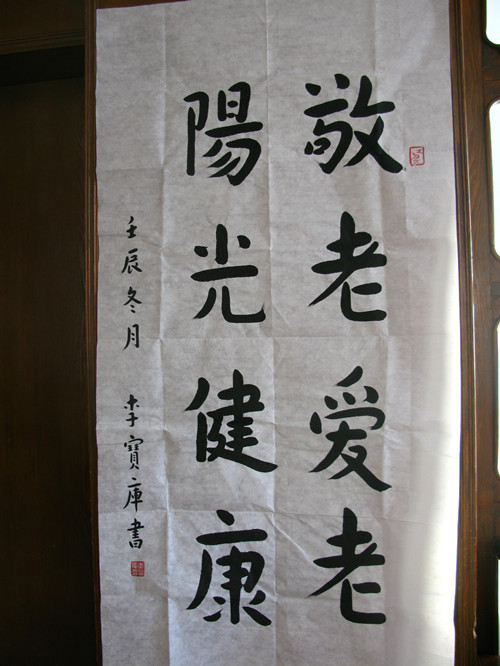 敬老爱老
陽光健康
壬辰冬月 李寶庫書